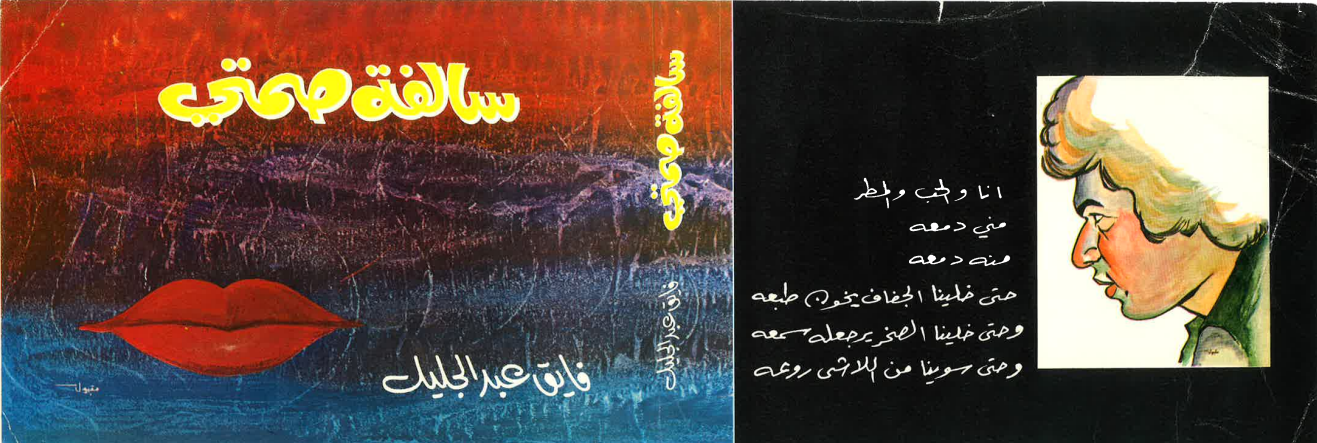 سالفة صمتي
فايق عبدالجليل
مقبول
سالفة صمتي
فايق عبدالجليل
انا والحب والمطر
مني دمعه
منه دمعه
حتى خلينا الجفاف يخون طبعه
وحتى خلينا الصخر يرجعله سمعه
وحتى سوينا من اللاشى روعه